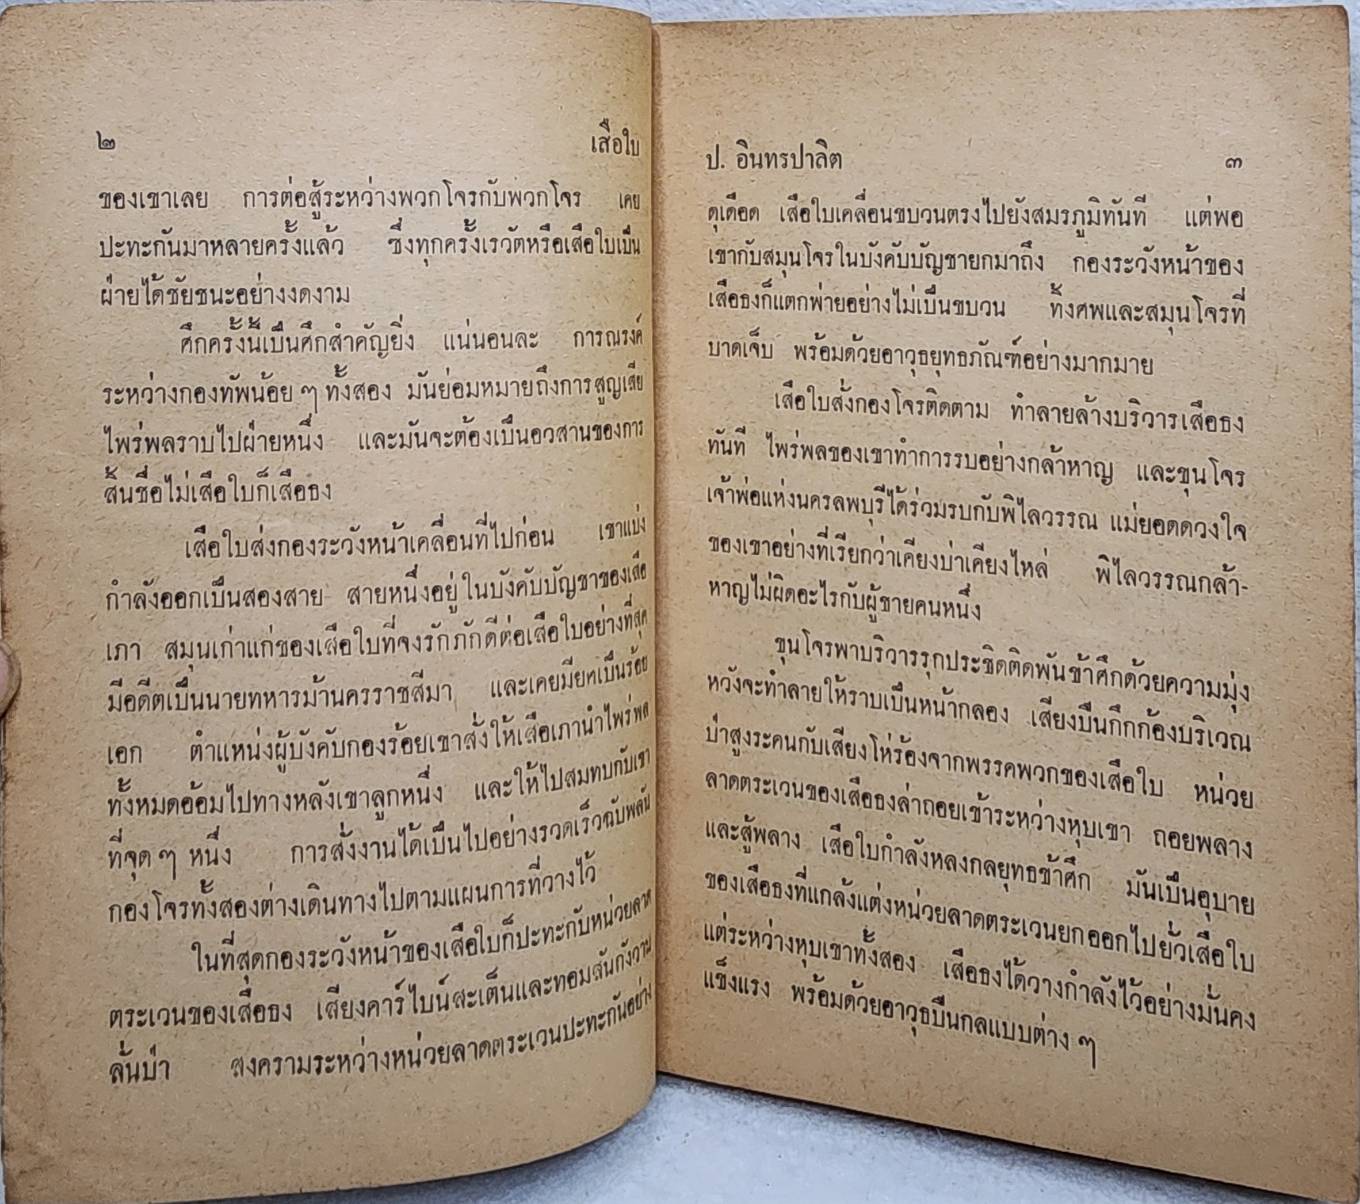 ๒ เสือใบ
ของเขาเลย การต่อสู้ระหว่างพวกโจรกับพวกโจร เคย
ปะทะกันมาหลายครั้งแล้ว ซึ่งทุกครั้งเรวัตหรือเสือใบเป็น
ฝ่ายได้ชัยชนะอย่างงดงาม
ศึกครั้งนี้เป็นศึกสำคัญยิ่ง แน่นอนละ การณรงค์
ระหว่างกองทัพน้อย ๆ ทั้งสอง มันย่อมหมายถึงการสูญเสีย
ไพร่พลราบไปฝ่ายหนึ่ง และมันจะต้องเป็นอวสานของการ
สิ้นชื่อไม่เสือใบก็เสือธง
เสือใบส่งกองระวังหน้าเคลื่อนที่ไปก่อน เขาแบ่ง
กำลังออกเป็นสองสาย สายหนึ่งอยู่ในบังคับบัญชาของเสือ
เภา สมุนเก่าแก่ของเสือใบที่จงรักภักดีต่อเสือใบอย่างที่สุด
มีอดีตเป็นนายทหารม้านครราชสีมา และเคยมียศเป็นร้อย
เอก ตำแหน่งผู้บังคับกองร้อยเขาสั่งให้เสือเภานำไพร่พล
ทั้งหมดอ้อมไปทางหลังเขาลูกหนึ่ง และให้ไปสมทบกับเขา
ที่จุด ๆ หนึ่ง การสั่งงานได้เป็นไปอย่างรวดเร็วฉับพลัน
กองโจรทั้งสองต่างเดินทางไปตามแผนการที่วางไว้
ในที่สุดกองระวังหน้าของเสือใบก็ปะทะกับหน่วยลาด
ตระเวนของเสือธง เสียงคาร์ไบน์สะเต็นและทอมสันกังวาน
ลั่นป่า สงครามระหว่างหน่วยลาดตระเวนปะทะกันอย่าง
ป. อินทรปาลิต ๓
ดุเดือด เสือใบเคลื่อนขบวนตรงไปยังสมรภูมิทันที แต่พอ
เขากับสมุนโจรในบังคับบัญชายกมาถึง กองระวังหน้าของ
เสือธงก็แตกพ่ายอย่างไม่เป็นขบวน ทิ้งศพและสมุนโจรที่
บาดเจ็บ พร้อมด้วยอาวุธยุทธภัณฑ์อย่างมากมาย
เสือใบสั่งกองโจรติดตาม ทำลายล้างบริวารเสือธง
ทันที ไพร่พลของเขาทำการรบอย่างกล้าหาญ และขุนโจร
เจ้าพ่อแห่งนครลพบุรีได้ร่วมรบกับพิไลวรรณ แม่ยอดดวงใจ
ของเขาอย่างที่เรียกว่าเคียงบ่าเคียงไหล่ พิไลวรรณกล้า-
หาญไม่ผิดอะไรกับผู้ชายคนหนึ่ง
ขุนโจรพาบริวารรุกประชิดติดพันข้าศึกด้วยความมุ่ง
หวังจะทำลายให้ราบเป็นหน้ากลอง เสียงปืนกึกก้องบริเวณ
ป่าสูงระคนกับเสียงโห่ร้องจากพรรคพวกของเสือใบ หน่วย
ลาดตระเวนของเสือธงล่าถอยเข้าระหว่างหุบเขา ถอยพลาง
และสู้พลาง เสือใบกำลังหลงกลยุทธข้าศึก มันเป็นอุบาย
ของเสือธงที่แกล้งแต่งหน่วยลาดตระเวนยกออกไปยั่วเสือใบ
แต่ระหว่างหุบเขาทั้งสอง เสือธงได้วางกำลังไว้อย่างมั่นคง
แข็งแรง พร้อมด้วยอาวุธปืนกลแบบต่าง ๆ